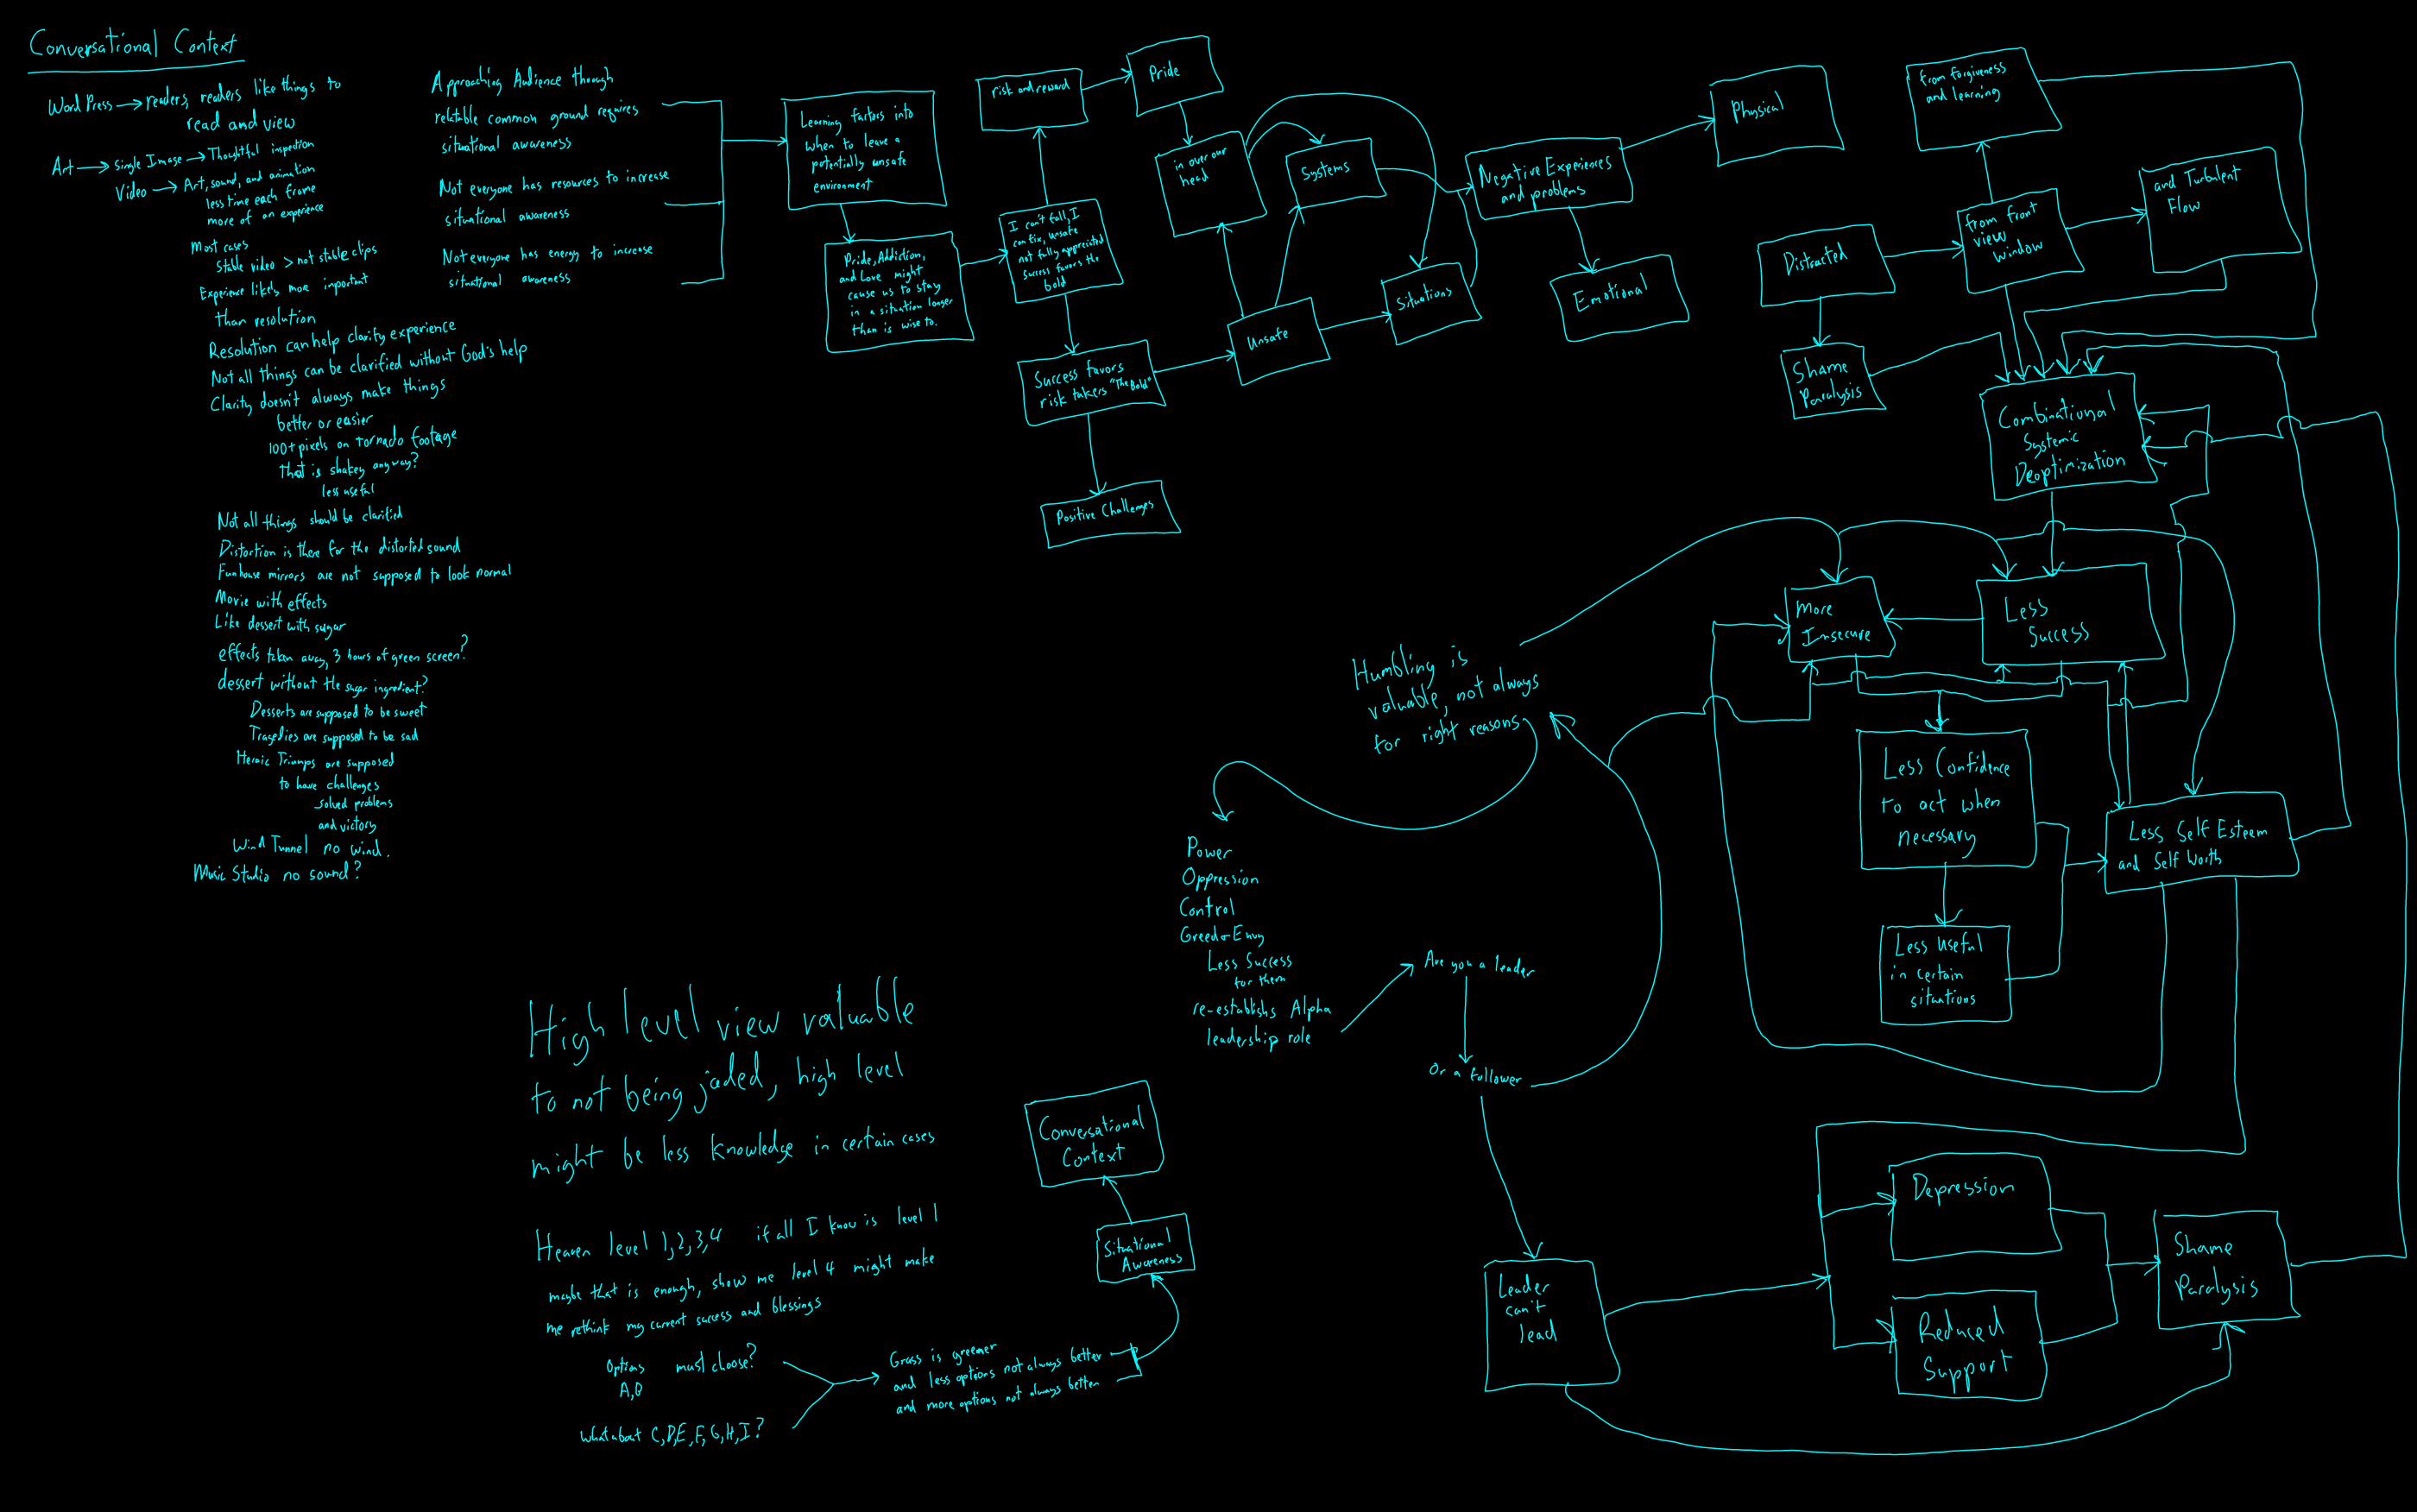 Conversational Context
Word Press → readers, readers like things to
read and view
Art → Single Image → Thoughtful inspection
Video → Art, sound, and animation
less time each frame
more of an experience
Most cases
Stable video > not stable clips
Experience likely more important
than resolution
Resolution can help clarity experience
Not all things can be clarified without God's help
Clarity doesn't always make things
better or easier
100+ pixels on tornado footage
That is shakey anyway?
less useful
Not all things should be clarified
Distortion is there for the distorted sound
Funhouse mirrors are not supposed to look normal
Movie with effects
Like dessert with sugar
effects taken away, 3 hours of green screen?
dessert without the sugar ingredient?
Desserts are supposed to be sweet
Tragedies are supposed to be sad
Heroic Triumps are supposed
to have challenges
solved problems
and victory
Wind Tunnel no wind.
Music Studio no sound?
Approaching Audience through
relatable common ground requires
situational awareness
Not everyone has resources to increase
situational awareness
Not everyone has energy to increase
situational awareness
Learning factors into
when to leave a
potentially unsafe
environment
Pride, Addiction,
and Love might
cause us to stay
in a situation longer
than is wise to.
I can't fall, I
can fix, unsafe
not fully appreciated
success favors the
bold
risk and reward
Pride
in over our
head
Systems
Success favors
risk takers "The Bold"
Positive Challenges
Unsafe
Situations
Negative Experiences
and problems
Physical
Emotional
Distracted
Shame
Paralysis
from front
view
window
from forgiveness
and learning
and Turbulent
Flow
Combinational
Systemic
Deoptimization
More
Insecure
Less
Success
Less Confidence
to act when
necessary
Less Self Esteem
and Self Worth
Less Useful
in certain
situations
Humbling is
valuable, not always
for right reasons
Power
Oppression
Control
Greed + Envy
Less Success
for them
re-establishs Alpha
leadership role
Are you a leader
Or a follower
Leader
can't
lead
Depression
Reduced
Support
Shame
Paralysis
High level view valuable
to not being jaded, high level
might be less knowledge in certain cases
Heaven level 1,2,3,4 if all I know is level 1
maybe that is enough, show me level 4 might make
me rethink my current success and blessings
Options must choose?
A,B
What about C,D,E,F,G,H,I?
Grass is greener
and less options not always better
and more options not always better
Situational
Awareness
Conversational
Context